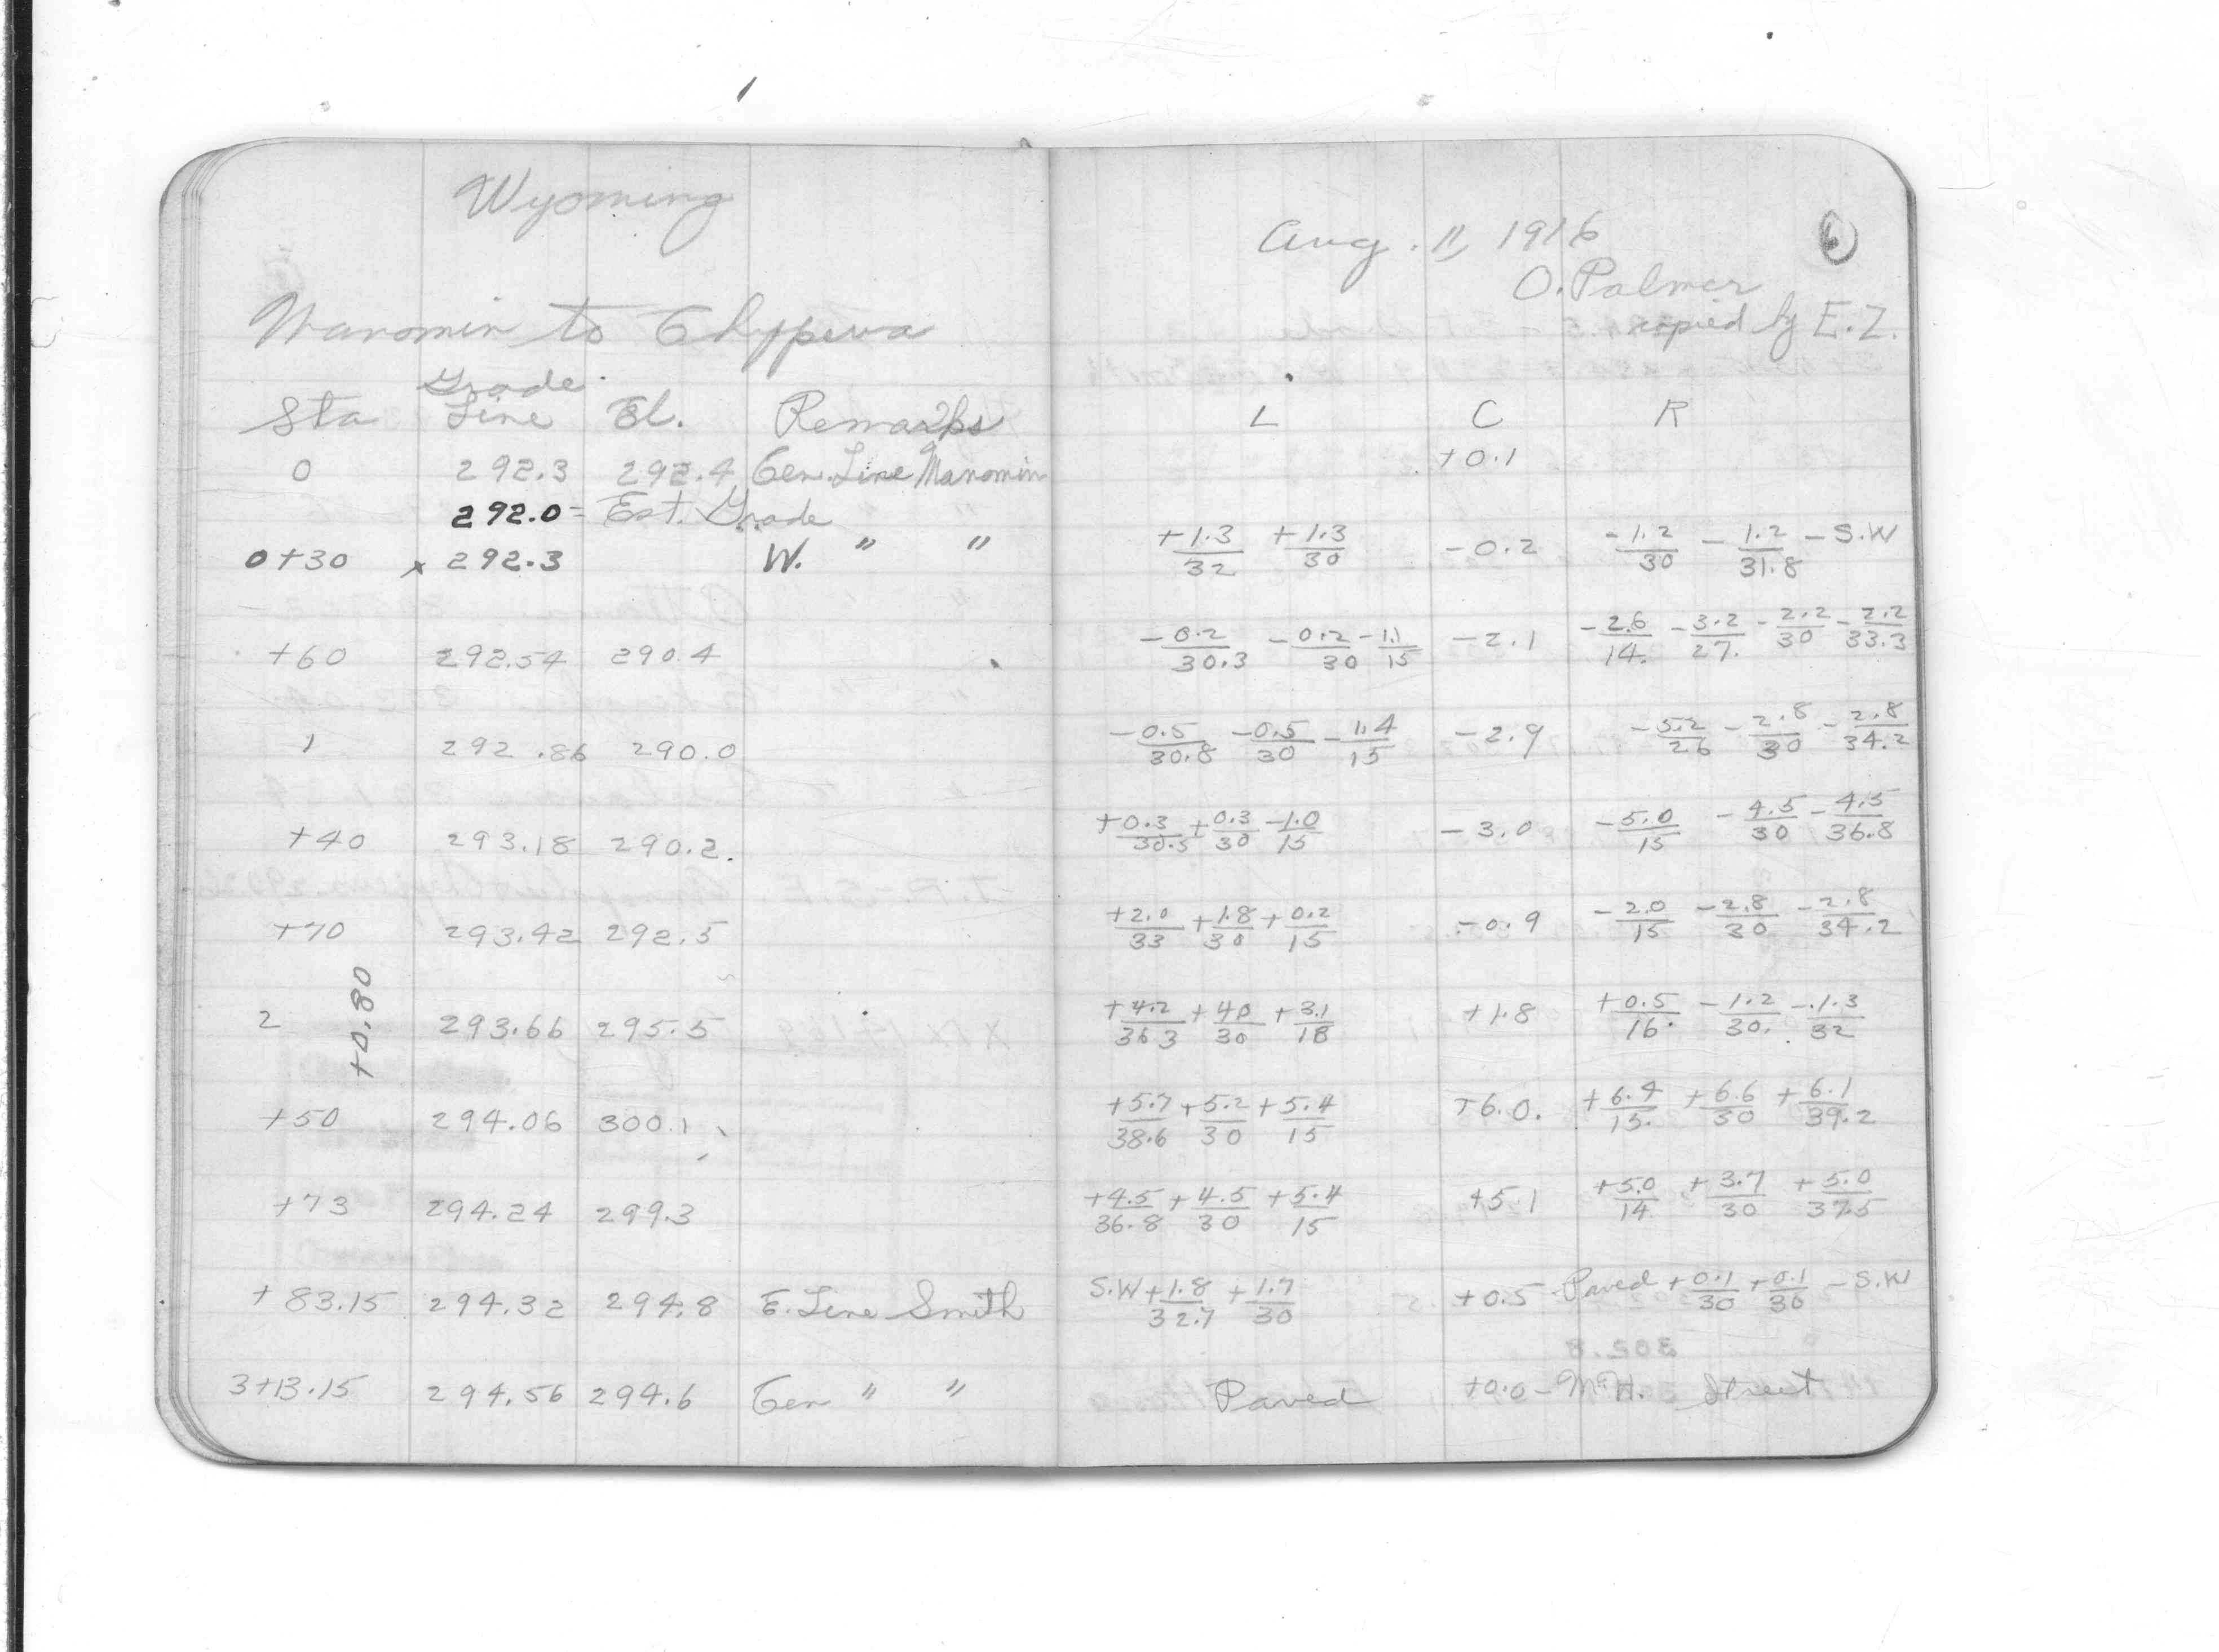 Wyoming
Manomin to Chyppewa
Grade
Sta Line El. Remarks
0 292.3 292.4 Cen. Line Manomin
292.0 = Est. Grade
0+30 x 292.3 W. " "
+60 292.54 290.4
1 292.86 290.0
+40 293.18 290.2.
+70 293.42 292.5
+0.80
2 293.66 295.5
+50 294.06 300.1
+73 294.24 299.3
+83.15 294.32 294.8 E. Line Smith
3+13.15 294.56 294.6 Cen " "
Aug. 11, 1916
6
O. Palmer
copied by E.Z.
L C R
+0.1
+1.3/32 +1.3/30 -0.2 -1.2/30 -1.2/31.8 -S.W
-0.2/30.3 -0.2/30 -1.1/15 -2.1 -2.6/14. -3.2/27. -2.2/30 -2.2/33.3
-0.5/30.8 -0.5/30 -1.4/15 -2.9 -5.2/26 -2.8/30 -2.8/34.2
+0.3/30.5 +0.3/30 -1.0/15 -3.0 -5.0/15 -4.5/30 -4.5/36.8
+2.0/33 +1.8/30 +0.2/15 -0.9 -2.0/15 -2.8/30 -2.8/34.2
+4.2/36.3 +4.0/30 +3.1/18 +1.8 +0.5/16. -1.2/30. -1.3/32
+5.7/38.6 +5.2/30 +5.4/15 +6.0. +6.4/15. +6.6/30 +6.1/39.2
+4.5/36.8 +4.5/30 +5.4/15 +5.1 +5.0/14 +3.7/30 +5.0/37.5
S.W +1.8/32.7 +1.7/30 +0.5 -Paved +0.1/30 +0.1/30 -S.W
Paved +0.0 - M.H. Street